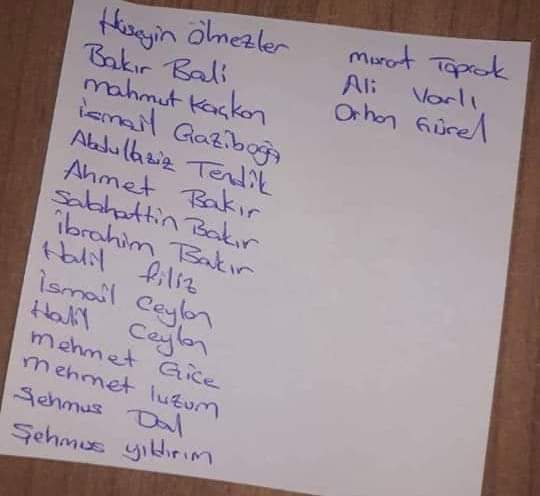 Hüseyin Ölmezler
Bakır Bali
mahmut Kaçkon
ismail Gaziboğa
Abdullaziz Terdik
Ahmet Bakır
Salahattin Bakır
ibrahim Bakır
Halil filiz
ismail Ceylan
Halil Ceylan
mehmet Gice
mehmet luzum
Şehmus Dal
Şehmus yıldırım
murat Toprak
Ali Varlı
Orhan Gürel